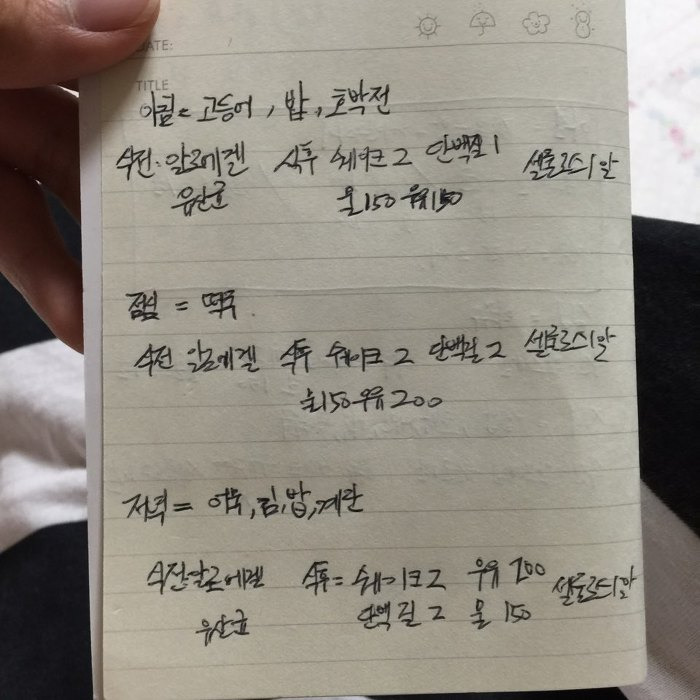 DATE:
TITLE
아침 = 고등어, 밥, 호박전
식전·알로에겔 식후 쉐이크 2 단백질 1 셀룰로스 1알
유산균 물150 우유150
점심 = 떡국
식전 알로에겔 식후 쉐이크 2 단백질 2 셀룰로스 1알
물150 우유 200
저녁 = 어묵, 김, 밥, 계란
식전·알로에겔 식후 = 쉐이크 2 우유 200 셀룰로스 1알
유산균 단백질 2 물 150